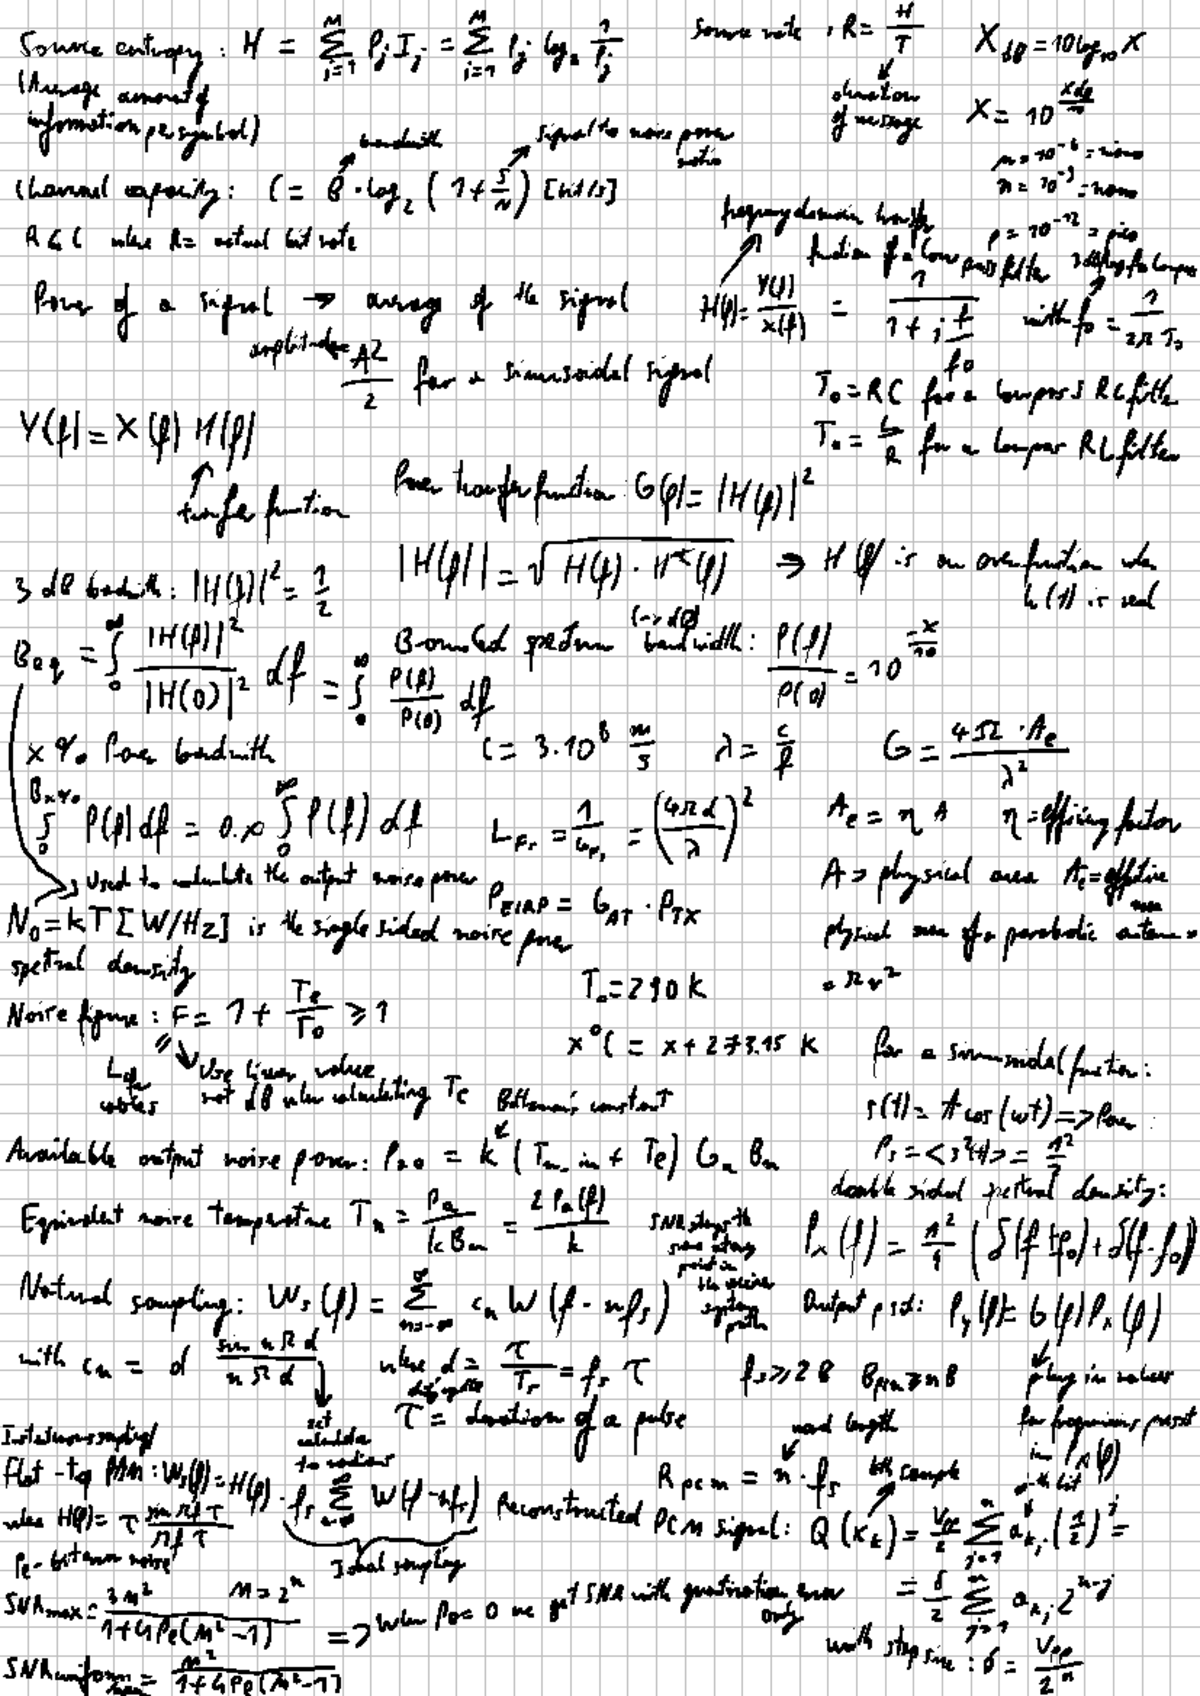 Source entropy : H = \sum_{j=1}^{M} P_j I_j = \sum_{j=1}^{M} P_j log_2 \frac{1}{P_j}
(Average amount of
information per symbol)
Source rate : R = \frac{H}{T}
duration
of message
X_{dB} = 10 log_{10} X
X = 10^{\frac{X_{dB}}{10}}
n = 10^{-9} = nano
p = 10^{-12} = pico
bandwith
signal to noise power
ratio
Channel capacity : C = B · log_2 (1 + \frac{S}{N}) [bit/s]
R ≤ C where R = actual bit rate
Power of a signal → average of the signal
amplitude
\frac{A^2}{2} for a sinusoidal signal
frequency domain transfer
function of a low pass filter
H(f) = \frac{Y(f)}{X(f)} = \frac{1}{1 + j \frac{f}{f_0}} with f_0 = \frac{1}{2π T_0}
T_0 = RC for a lowpass RC filter
T_0 = \frac{L}{R} for a lowpass RL filter
Y(f) = X(f) H(f)
transfer function
Power transfer function : G(f) = |H(f)|^2
|H(f)| = \sqrt{H(f) · H^*(f)} ⇒ H(f) is an even function when
h(t) is real
3 dB bandwith : |H(f)|^2 = \frac{1}{2}
B_{eq} = \int_0^∞ \frac{|H(f)|^2}{|H(0)|^2} df = \int_0^∞ \frac{P(f)}{P(0)} df
Bounded spectrum bandwidth : \frac{P(f)}{P(0)} = 10^{\frac{-x}{10}}
(-x dB)
x % Power bandwith
C = 3·10^8 \frac{m}{s} λ = \frac{c}{f} G = \frac{4π · A_e}{λ^2}
\int_0^{B_{x%}} P(f) df = 0.x \int_0^∞ P(f) df
L_{Fs} = \frac{1}{G_{Fs}} = (\frac{4πd}{λ})^2
A_e = η A η = efficiency factor
Used to calculate the output noise power
A => physical area A_e = effective
area
P_{EIRP} = G_{AT} · P_{TX}
N_0 = kT [W/Hz] is the single sided noise power
spectral density
physical area of a parabolic antenna
= πr^2
T_0 = 290 k
Noise figure : F = 1 + \frac{T_e}{T_0} ≥ 1
x°C = x + 273.15 K
L for
cables
Use linear value
not dB when calculating T_e
Boltzmann's constant
for a sinusoidal function :
s(t) = A cos(wt) => Power :
P_s = <s^2(t)> = \frac{A^2}{2}
Available output noise power : P_{ao} = k (T_{n,in} + T_e) G_a B_n
double sided spectral density :
P_x(f) = \frac{A^2}{4} (δ(f+f_0) + δ(f-f_0))
Equivalent noise temperature T_n = \frac{P_a}{k B_n} = \frac{2 P_a(f)}{k}
SNR stays the
same at any
point in
the receiver
system
path
Natural sampling : W_s(f) = \sum_{n=-∞}^{∞} c_n W(f - nf_s)
Output psd : P_y(f) = G(f) P_x(f)
plug in values
for frequencies present
in P_x(f)
with c_n = d \frac{sin nπd}{nπd} where d = \frac{τ}{T_s} = f_s τ
duty cycle
τ = duration of a pulse
f_s ≥ 2B B_{PCM} ≥ nB
set
calculator
to radians
Instantaneous sampling /
Flat-top PAM : W_s(f) = H(f) · f_s \sum_{n=-∞}^{∞} W(f - nf_s)
Ideal sampling
where H(f) = τ \frac{sin πfτ}{πfτ}
word length
R_{PCM} = n · f_s
kth sample
j-th bit
Reconstructed PCM signal : Q(x_k) = \frac{V_{pp}}{2} \sum_{j=1}^{n} a_{kj} (\frac{1}{2})^j =
= \frac{δ}{2} \sum_{j=1}^{n} a_{kj} 2^{n-j}
with step size : δ = \frac{V_{pp}}{2^n}
Pe - bit error noise
SNR_{max} = \frac{3M^2}{1+4Pe(M^2-1)} M = 2^n
=> When Pe = 0 we get SNR with quantization error
only
SNR_{uniform} = \frac{M^2}{1+4Pe(M^2-1)}